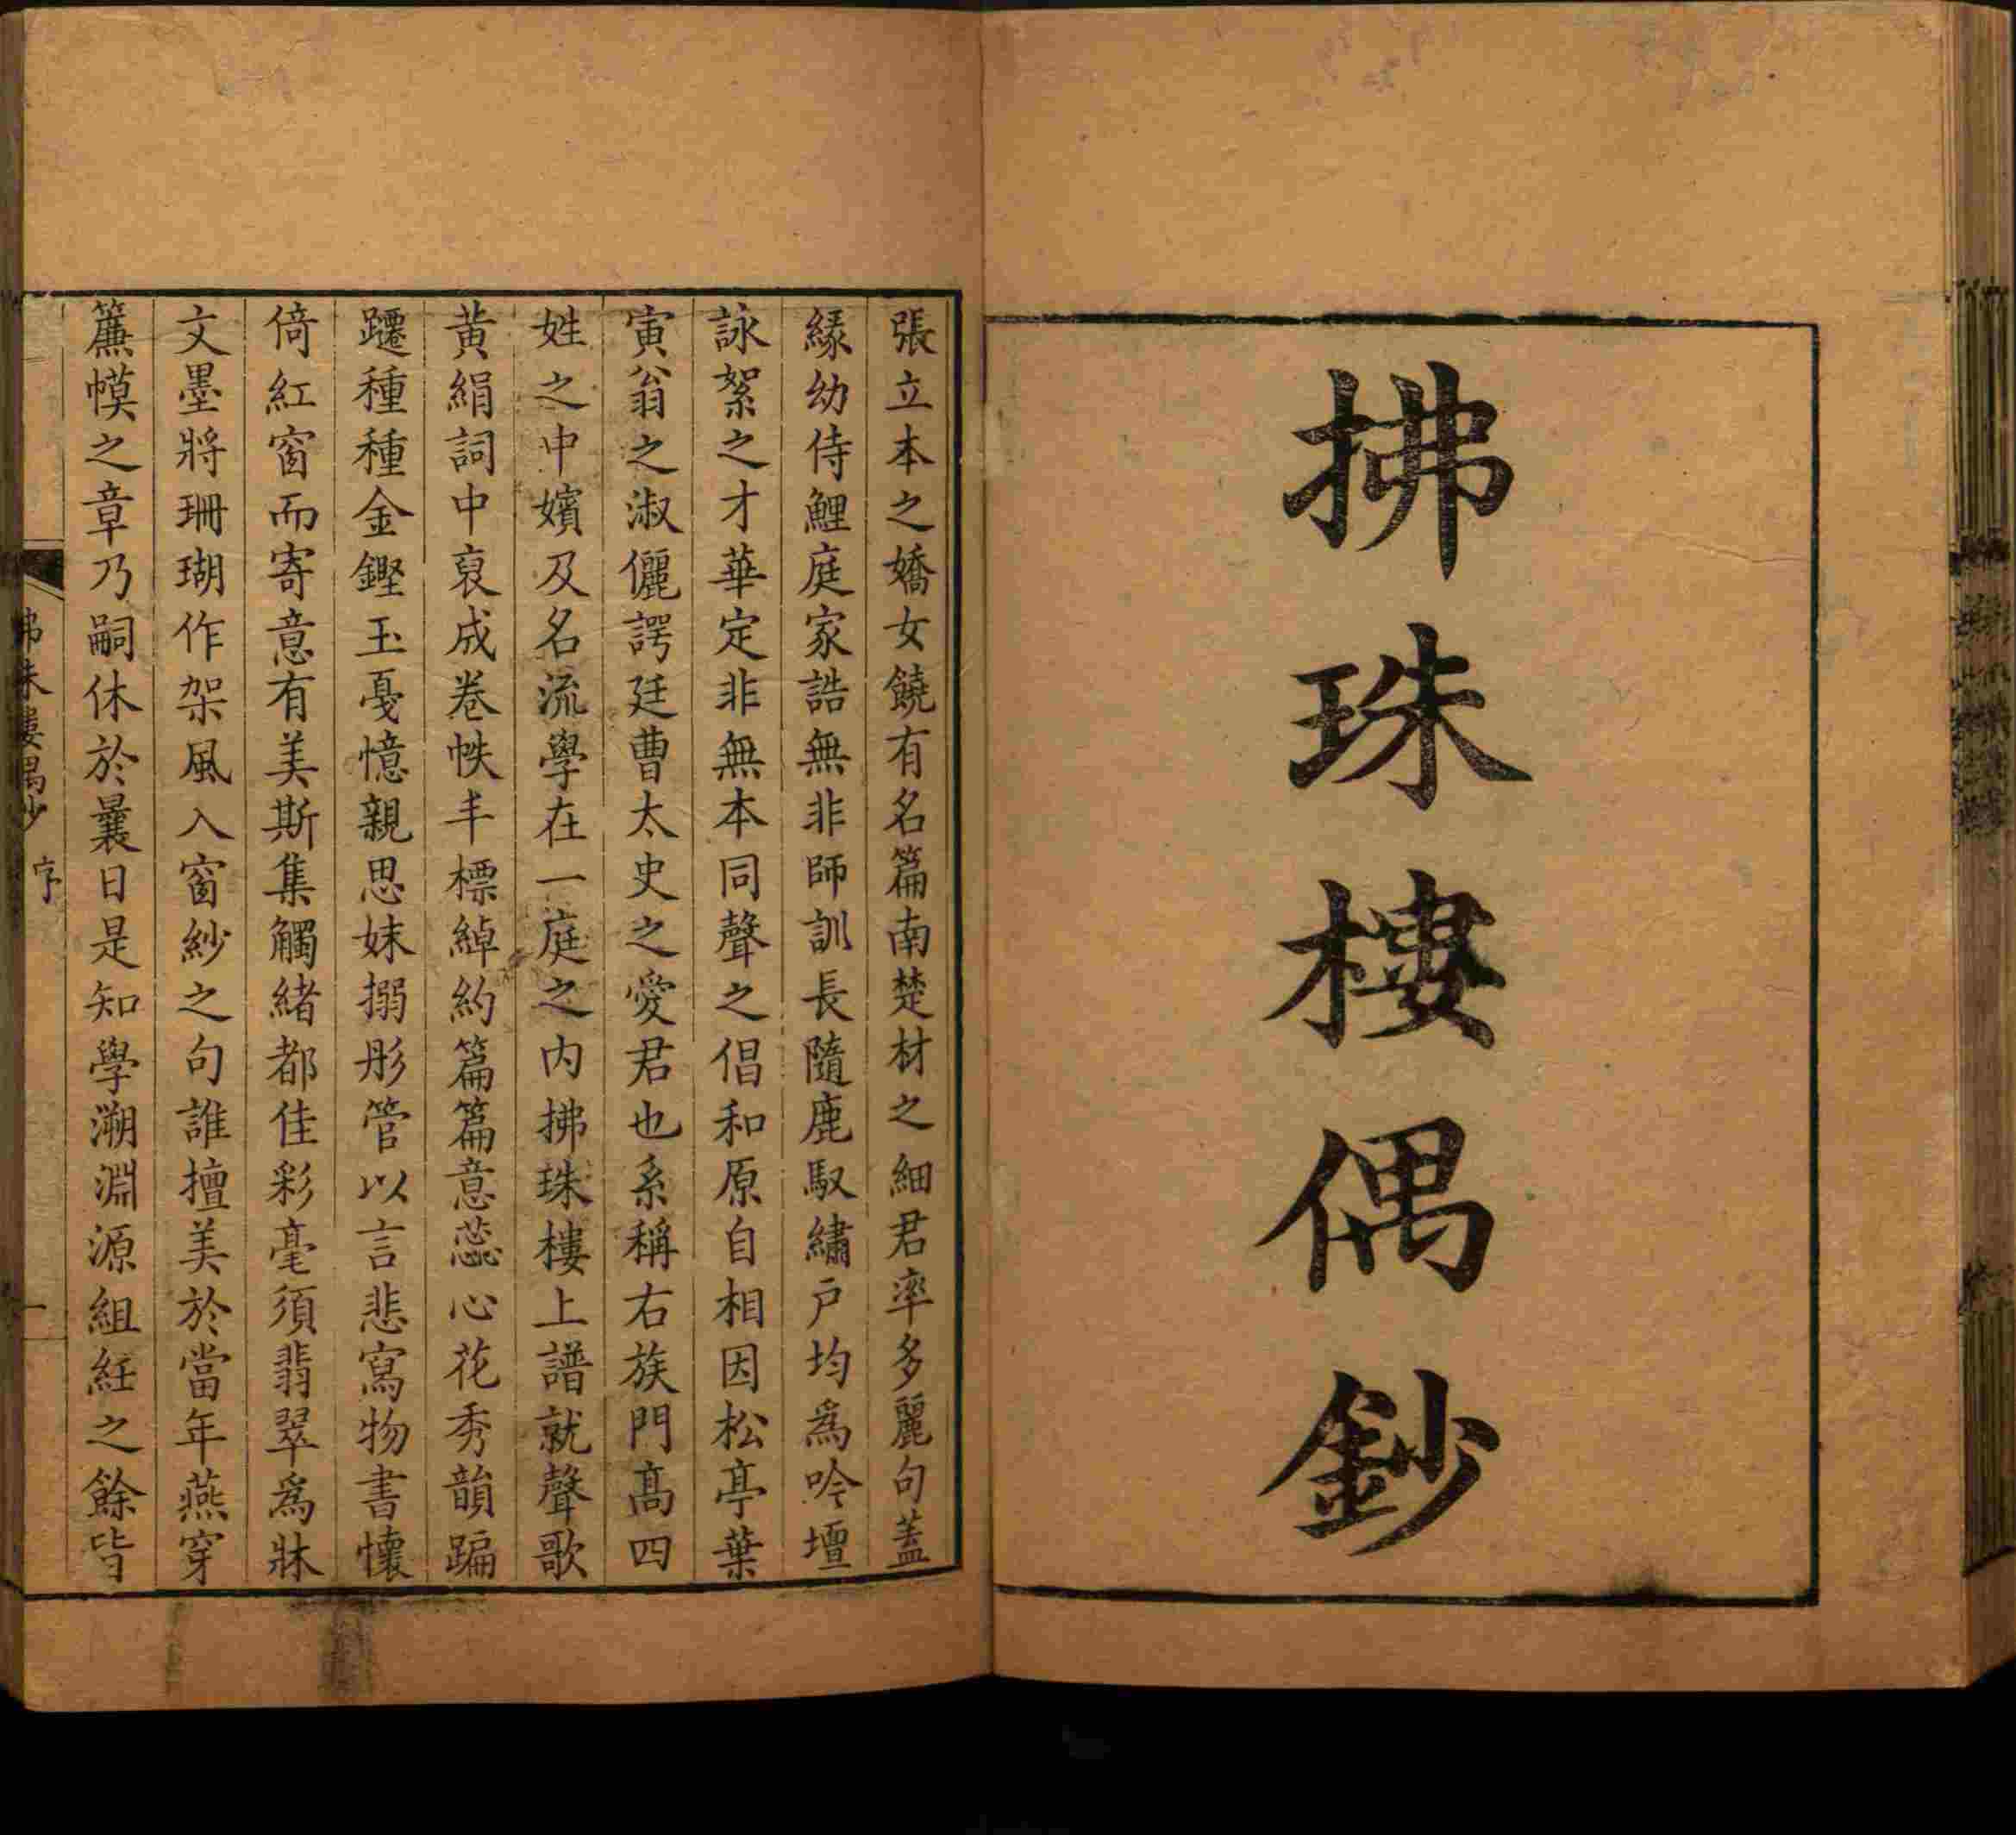 拂珠樓偶鈔
張立本之嬌女饒有名篇南楚材之細君率多麗句蓋
緣幼侍鯉庭家誥無非師訓長隨鹿馭繡戶均為吟壇
詠絮之才華定非無本同聲之倡和原自相因松亭葉
寅翁之淑儷諤廷曹太史之愛君也系稱右族門高四
姓之中嬪及名流學在一庭之內拂珠樓上譜就聲歌
黃絹詞中裒成卷帙丰標綽約篇篇意蕊心花秀韻蹁
躚種種金鏗玉戛憶親思妹搦彤管以言悲寫物書懷
倚紅窗而寄意有美斯集觸緒都佳彩毫須翡翠為牀
文墨將珊瑚作架風入窗紗之句誰擅美於當年燕穿
簾幙之章乃嗣休於曩日是知學溯淵源組紝之餘皆
拂珠樓偶鈔 序 一